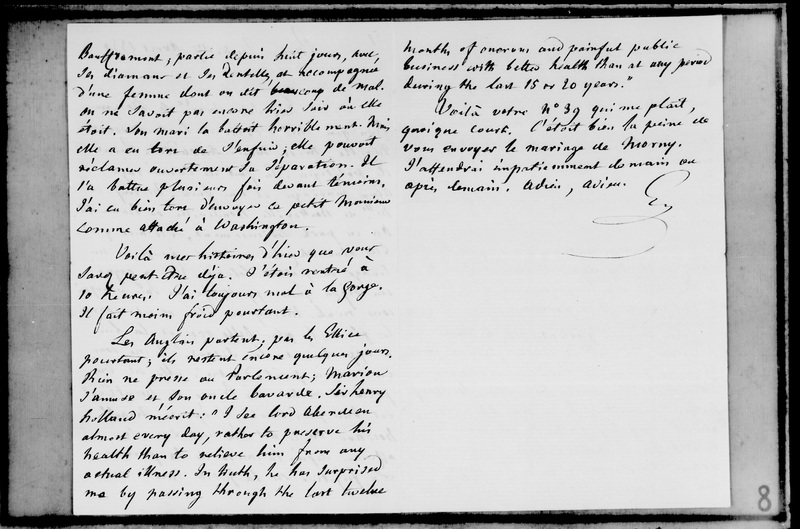 Bauffremont, partie depuis huit jours, avec
ses diamans et ses dentelles, et accompagnée
d'une femme dont on dit beaucoup de mal.
on ne savoit pas encore hier soir où elle
étoit. Son mari la battoit horriblement. Mais
elle a eu tort de s'enfuir; elle pouvoit
réclamer ouvertement sa séparation. Il
l'a battue plusieurs fois devant témoins.
J'ai eu bien tort d'envoyer ce petit Monsieur
comme attaché à Washington.
Voilà mes histoires d'hier que vous
savez peut-être déja. J'étois rentré à
10 heures. J'ai toujours mal à la gorge.
Il fait moins froid pourtant.
Les Anglais partent, pas les Ellice
pourtant; ils restent encore quelques jours.
Rien ne presse au Parlement; Marion
s'amuse et son oncle bavarde. Sir henry
holland m'écrit: "I see lord Aberdeen
almost every day, rather to preserve his
health than to relieve him from any
actual illness. In truth, he has surprised
me by passing through the last twelve
months of onerous and painful public
business with better health than at any period
during the last 15 or 20 years."
Voilà votre n° 39 qui me plait,
quoique court. C'étoit bien la peine de
vous envoyer le mariage de Morny.
J'attendrai impatiemment demain ou
après demain. Adieu, adieu.
8